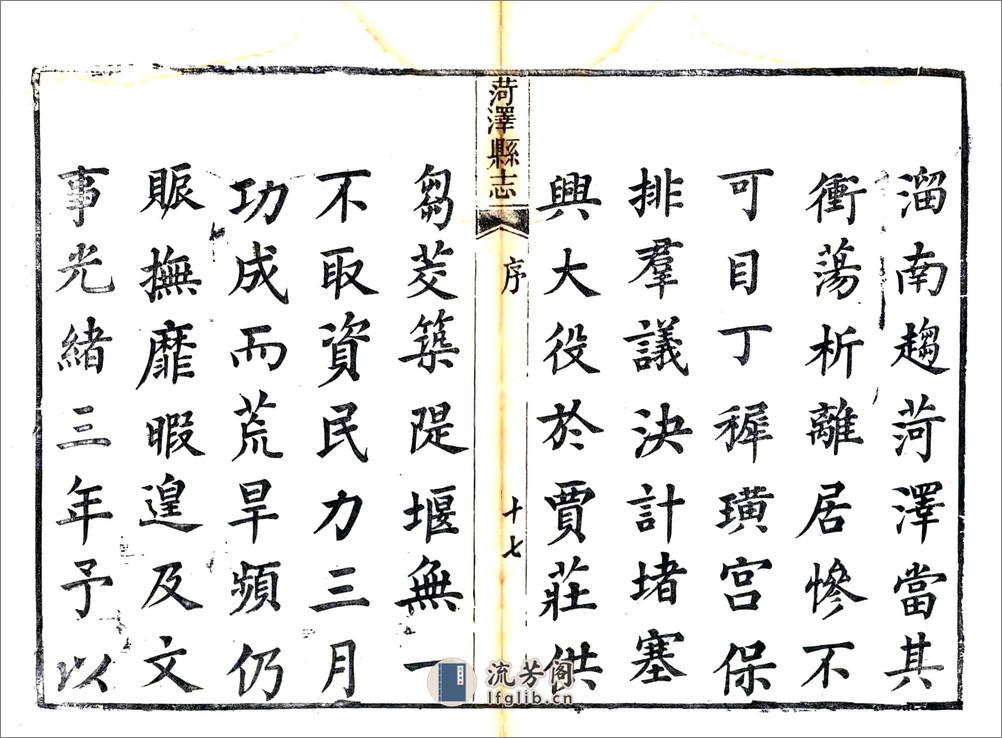 溜南趨菏澤當其
衝蕩析離居慘不
可目丁穉璜宮保
排羣議決計堵塞
興大役於賈莊供
菏澤縣志
序
十七
芻茭築隄堰無一
不取資民力三月
功成而荒旱頻仍
賑撫靡暇遑及文
事光緒三年予以
流芳阁
lfglib.cn